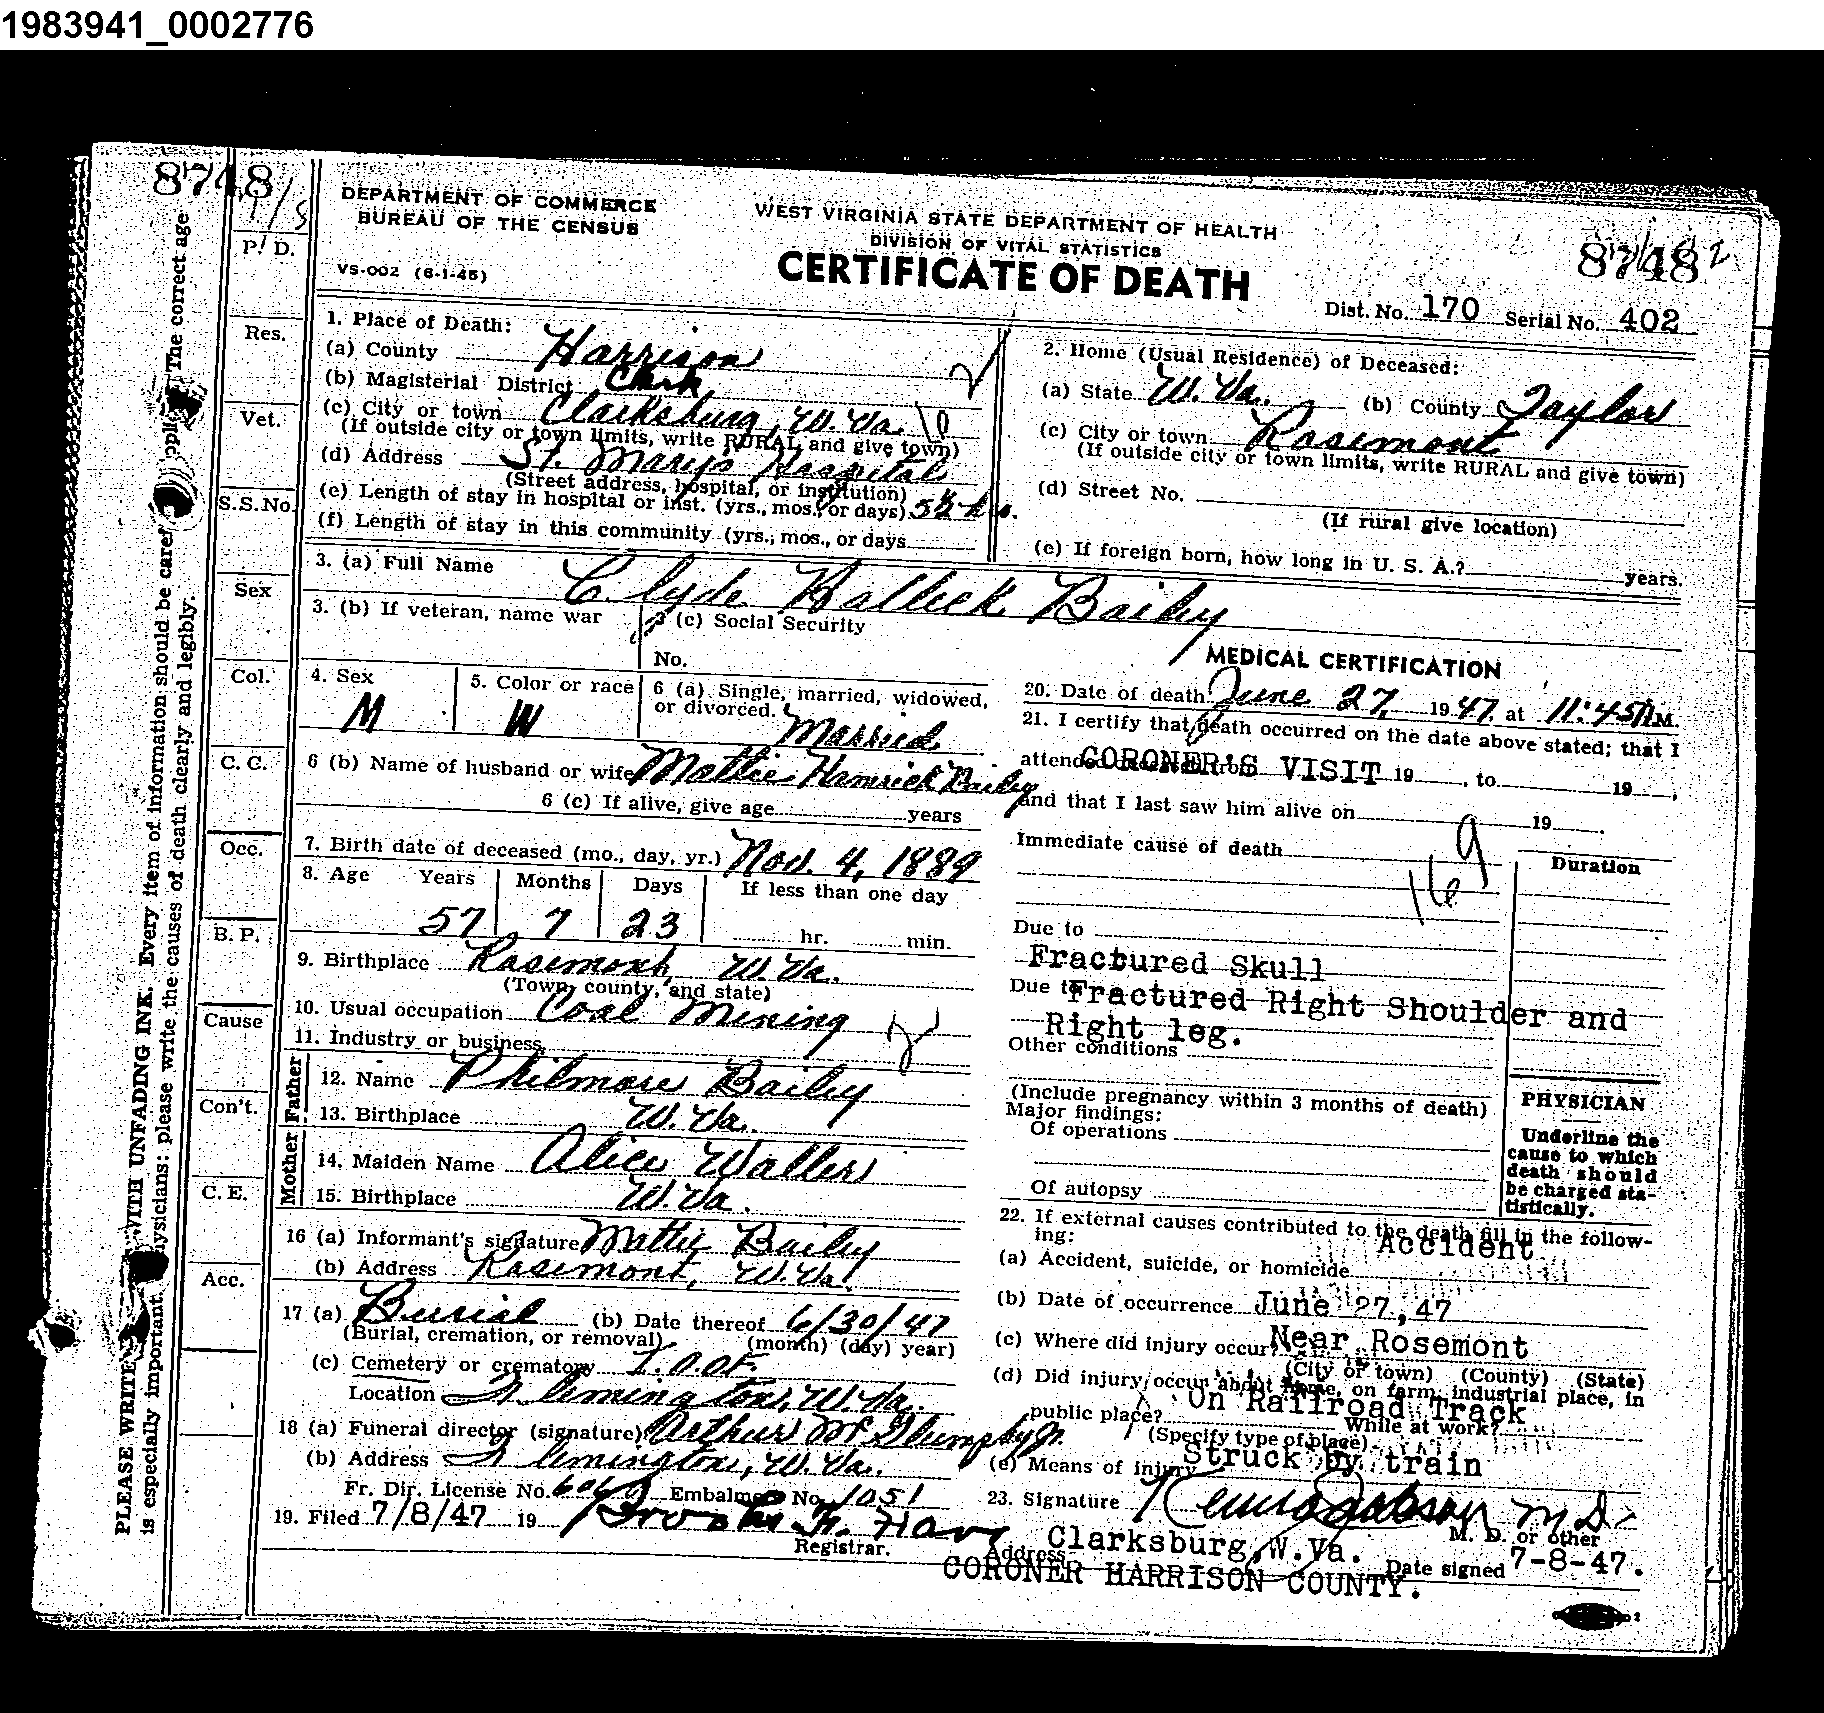 1983941_0002776
8748
DEPARTMENT OF COMMERCE
BUREAU OF THE CENSUS
VS-002 (6-1-45)
WEST VIRGINIA STATE DEPARTMENT OF HEALTH
DIVISION OF VITAL STATISTICS
CERTIFICATE OF DEATH
8748
Dist. No. 170 Serial No. 402
P. D.
Res.
Vet.
S.S.No.
Sex
Col.
C. C.
Occ.
B. P.
Cause
Con't.
C. E.
Acc.
PLEASE WRITE WITH UNFADING INK. Every item of information should be The correct age
is especially important. physicians: please write the causes of death clearly and legibly.
1. Place of Death:
(a) County Harrison
(b) Magisterial District Clark
(c) City or town Clarksburg, W. Va. 10
(If outside city or town limits, write RURAL and give town)
(d) Address St. Marys Hospital
(Street address, hospital, or institution)
(e) Length of stay in hospital or inst. (yrs., mos., or days)
(f) Length of stay in this community (yrs., mos., or days
2. Home (Usual Residence) of Deceased:
(a) State W. Va. (b) County Taylor
(c) City or town Rosemont
(If outside city or town limits, write RURAL and give town)
(d) Street No.
(If rural give location)
(e) If foreign born, how long in U. S. A.? years.
3. (a) Full Name Clyde Hallick Bailey
3. (b) If veteran, name war
3 (c) Social Security
No.
4. Sex M
5. Color or race W
6 (a) Single, married, widowed,
or divorced. Married
6 (b) Name of husband or wife Mattie Hamrick Bailey
6 (c) If alive, give age years
7. Birth date of deceased (mo., day, yr.) Nov. 4, 1889
8. Age Years Months Days If less than one day
57 7 23 hr. min.
9. Birthplace Rosemont, W. Va.
(Town, county, and state)
10. Usual occupation Coal Mining
11. Industry or business
Father
12. Name Philmore Bailey
13. Birthplace W. Va.
Mother
14. Maiden Name Alice Waller
15. Birthplace W. Va.
16 (a) Informant's signature Mattie Bailey
(b) Address Rosemont, W. Va.
17 (a) Burial (b) Date thereof 6/30/47
(Burial, cremation, or removal) (month) (day) year)
(c) Cemetery or crematory I.O.O.F.
Location Flemington, W. Va.
18 (a) Funeral director (signature) Arthur
(b) Address Flemington, W. Va.
Fr. Dir. License No. Embalmer No. 1051
19. Filed 7/8/47 19
Registrar.
MEDICAL CERTIFICATION
20. Date of death June 27, 1947 at 11:45 P.M.
21. I certify that death occurred on the date above stated; that I
attended deceased from CORONER'S VISIT 19 , to 19 ,
and that I last saw him alive on 19 .
Immediate cause of death
169
Duration
Due to
Fractured Skull
Due to Fractured Right Shoulder and
Right leg.
Other conditions
(Include pregnancy within 3 months of death)
Major findings:
Of operations
Of autopsy
PHYSICIAN
Underline the
cause to which
death should
be charged sta-
tistically.
22. If external causes contributed to the death fill in the follow-
ing:
(a) Accident, suicide, or homicide Accident
(b) Date of occurrence June 27, 47
(c) Where did injury occur? Near Rosemont
(City or town) (County) (State)
(d) Did injury occur about home, on farm, industrial place, in
public place? On Railroad Track
While at work?
(Specify type of place)
(e) Means of injury Struck by train
23. Signature M D
M. D. or other
Address Clarksburg, W. Va.
Date signed 7-8-47.
CORONER HARRISON COUNTY.